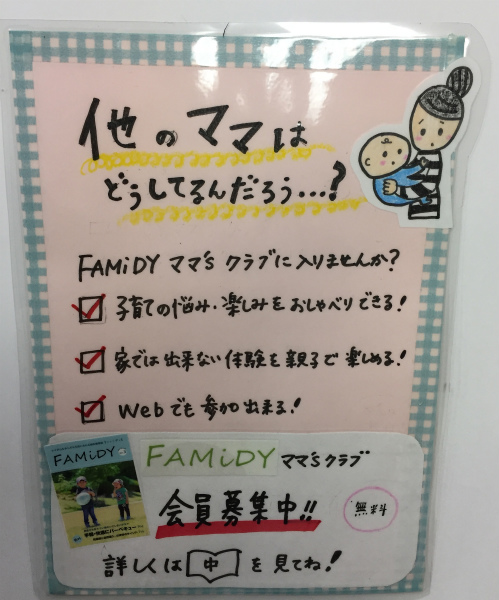 他のママは
どうしてるんだろう…?
FAMiDY ママ's クラブに入りませんか?
子育ての悩み・楽しみをおしゃべりできる!
家では出来ない体験を親子で楽しめる!
Webでも参加出来る!
FAMiDY
FAMiDY ママ'sクラブ
会員募集中!!
無料
詳しくは 中 を見てね!